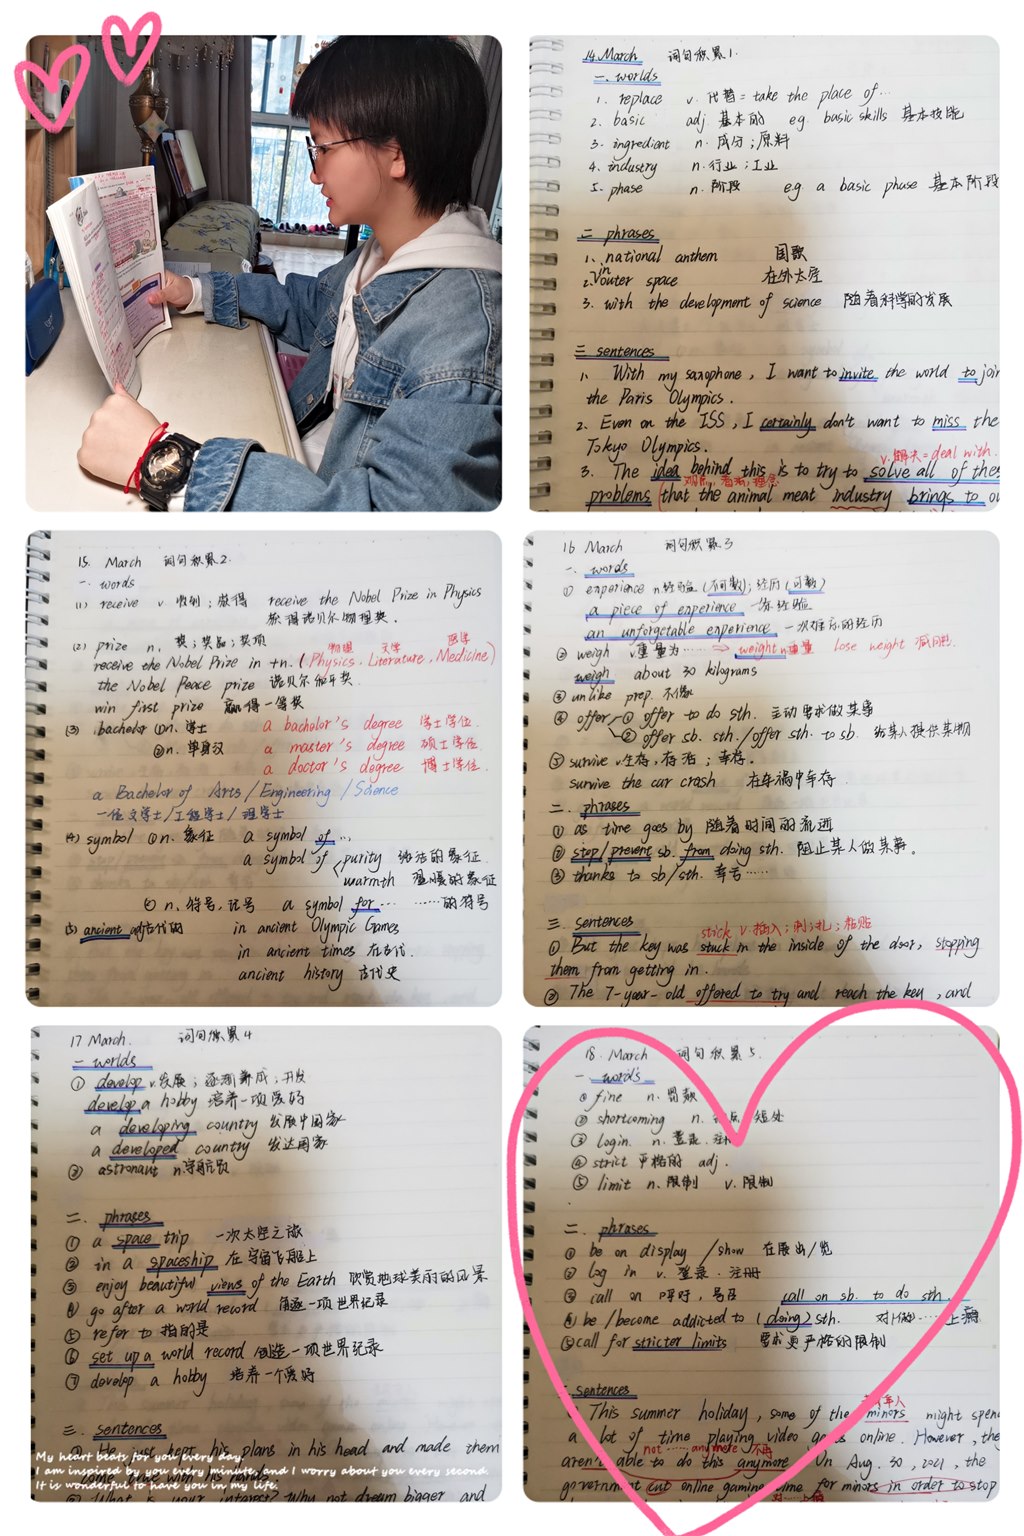 14.March 词句积累1.
一. worlds
1. replace v. 代替 = take the place of…
2. basic adj. 基本的 eg. basic skills 基本技能
3. ingredient n. 成分；原料
4. industry n. 行业；工业
5. phase n. 阶段 eg a basic phase 基本阶段
二 phrases
1. national anthem 国歌
2. in outer space 在外太空
3. with the development of science 随着科学的发展
三 sentences
1. With my saxophone, I want to invite the world to join
the Paris Olympics.
2. Even on the ISS, I certainly don't want to miss the
Tokyo Olympics.
v.解决=deal with.
3. The idea behind this is to try to solve all of thes
观点，看法，理念
problems that the animal meat industry brings to ou
15. March 词句积累2.
一. words
(1) receive v 收到；获得 receive the Nobel Prize in Physics
获得诺贝尔物理奖.
(2) prize n. 奖；奖品；奖项
物理 文学 医学
receive the Nobel Prize in +n. (Physics. Literature, Medicine)
the Nobel Peace prize 诺贝尔和平奖.
win first prize 赢得一等奖
(3) bachelor ①n. 学士 a bachelor's degree 学士学位.
②n. 单身汉 a master's degree 硕士学位.
a doctor's degree 博士学位.
a Bachelor of Arts / Engineering / Science
一位文学士/工程学士/理学士
(4) symbol ①n. 象征 a symbol of …
a symbol of purity 纯洁的象征.
warmth 温暖的象征
② n. 符号，记号 a symbol for… ……的符号
(5) ancient adj古代的 in ancient Olympic Games
in ancient times 在古代.
ancient history 古代史
16 March 词句积累3
一. words
① experience n.经验 (不可数)；经历 (可数)
a piece of experience 一条经验
an unforgetable experience 一次难忘的经历
② weigh v重量为…… → weight n重量 lose weight 减肥.
weigh about 30 kilograms
③ unlike prep. 不像
④ offer ① offer to do sth. 主动要求做某事
② offer sb. sth./offer sth. to sb. 给某人提供某物
⑤ survive v生存，存活；幸存.
survive the car crash 在车祸中幸存.
二. phrases
① as time goes by 随着时间的流逝
② stop/prevent sb. from doing sth. 阻止某人做某事。
③ thanks to sb/sth. 幸亏……
三. sentences
stick v.插入；刺；扎；粘贴
① But the key was stuck in the inside of the door, stopping
them from getting in.
② The 7-year-old offered to try and reach the key, and
17 March. 词句积累4
一 worlds
① develop v.发展；逐渐养成；开发
develop a hobby 培养一项爱好
a developing country 发展中国家
a developed country 发达国家
② astronaut n.宇航员
二. phrases
① a space trip 一次太空之旅
② in a spaceship 在宇宙飞船上
③ enjoy beautiful views of the Earth 欣赏地球美丽的风景
④ go after a world record 追逐一项世界记录
⑤ refer to 指的是
⑥ set up a world record 创造一项世界记录
⑦ develop a hobby 培养一个爱好
三. sentences
① He just kept his plans in his head and made them
come true with his hands.
② What is your interest? Why not dream bigger and
My heart beats for you every day.
I am inspired by you every minute, and I worry about you every second.
It is wonderful to have you in my life.
18. March 词句积累5.
一. words
① fine n. 罚款
② shortcoming n. 短处
③ login. n. 登录.
④ strict 严格的 adj.
⑤ limit n. 限制 v. 限制
二. phrases
① be on display /show 在展出/览
② log in v. 登录. 注册
③ call on 呼吁，号召 call on sb. to do sth.
④ be/become addicted to (doing) sth. 对(做)……上瘾
⑤ call for stricter limits 要求更严格的限制
三 sentences
① This summer holiday, some of the minors might spend
a lot of time playing video games online. However, the
not …… anymore 不再
aren't able to do this anymore On Aug. 30, 2021, the
government cut online gaming time for minors in order to stop